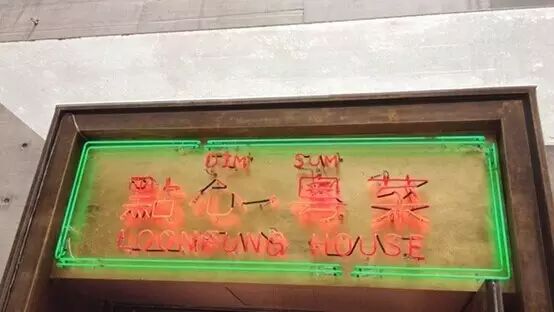 DIM SUM
點心·粵菜
LOONFUNG HOUSE